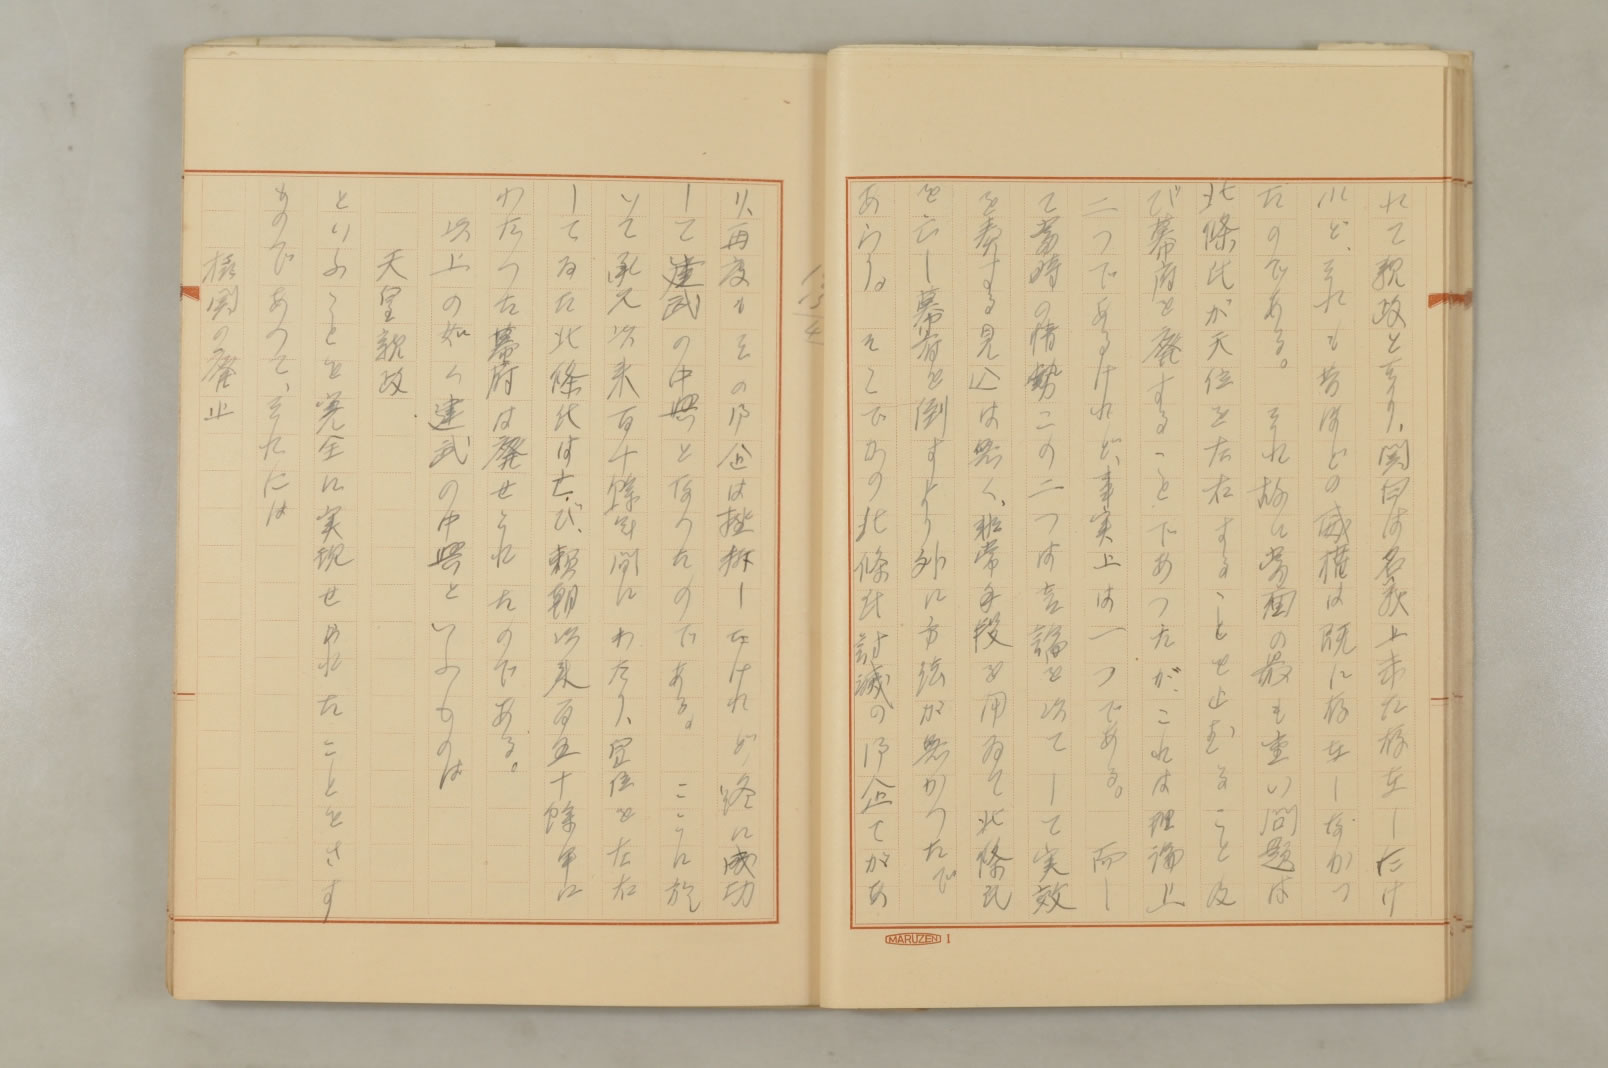 れて親政となり、関白は名義上未だ存在しだけ
れど、それも昔ほどの威権は既に存在しなかつ
たのである。それ故に当面の最も重い問題は
北條氏が天位を左右することを止むること及
び幕府を廃することであつたが、これは理論上
二つであるけれど、事実上は一つである。而し
て当時の情勢この二つは言論を以てして実效
を奏する見込は無く、非常手段を用ゐて北條氏
を亡し幕府を倒すより外に方法が無かつたで
あらう。そこでかの北條氏討滅の御企てがあ
り、再度もその御企は挫折したけれど終に成功
して建武の中興となつたのである。ここに於
いて承元以来百十餘年間にわたり、皇位を左右
してゐた北條氏は亡び、頼朝以来百五十餘年に
わたつた幕府は廃せられたのである。
以上の如く建武の中興といふものは
天皇親政
といふことを完全に実現せられたことをさす
ものであつて、それには
摂関の廃止
MARUZEN 1